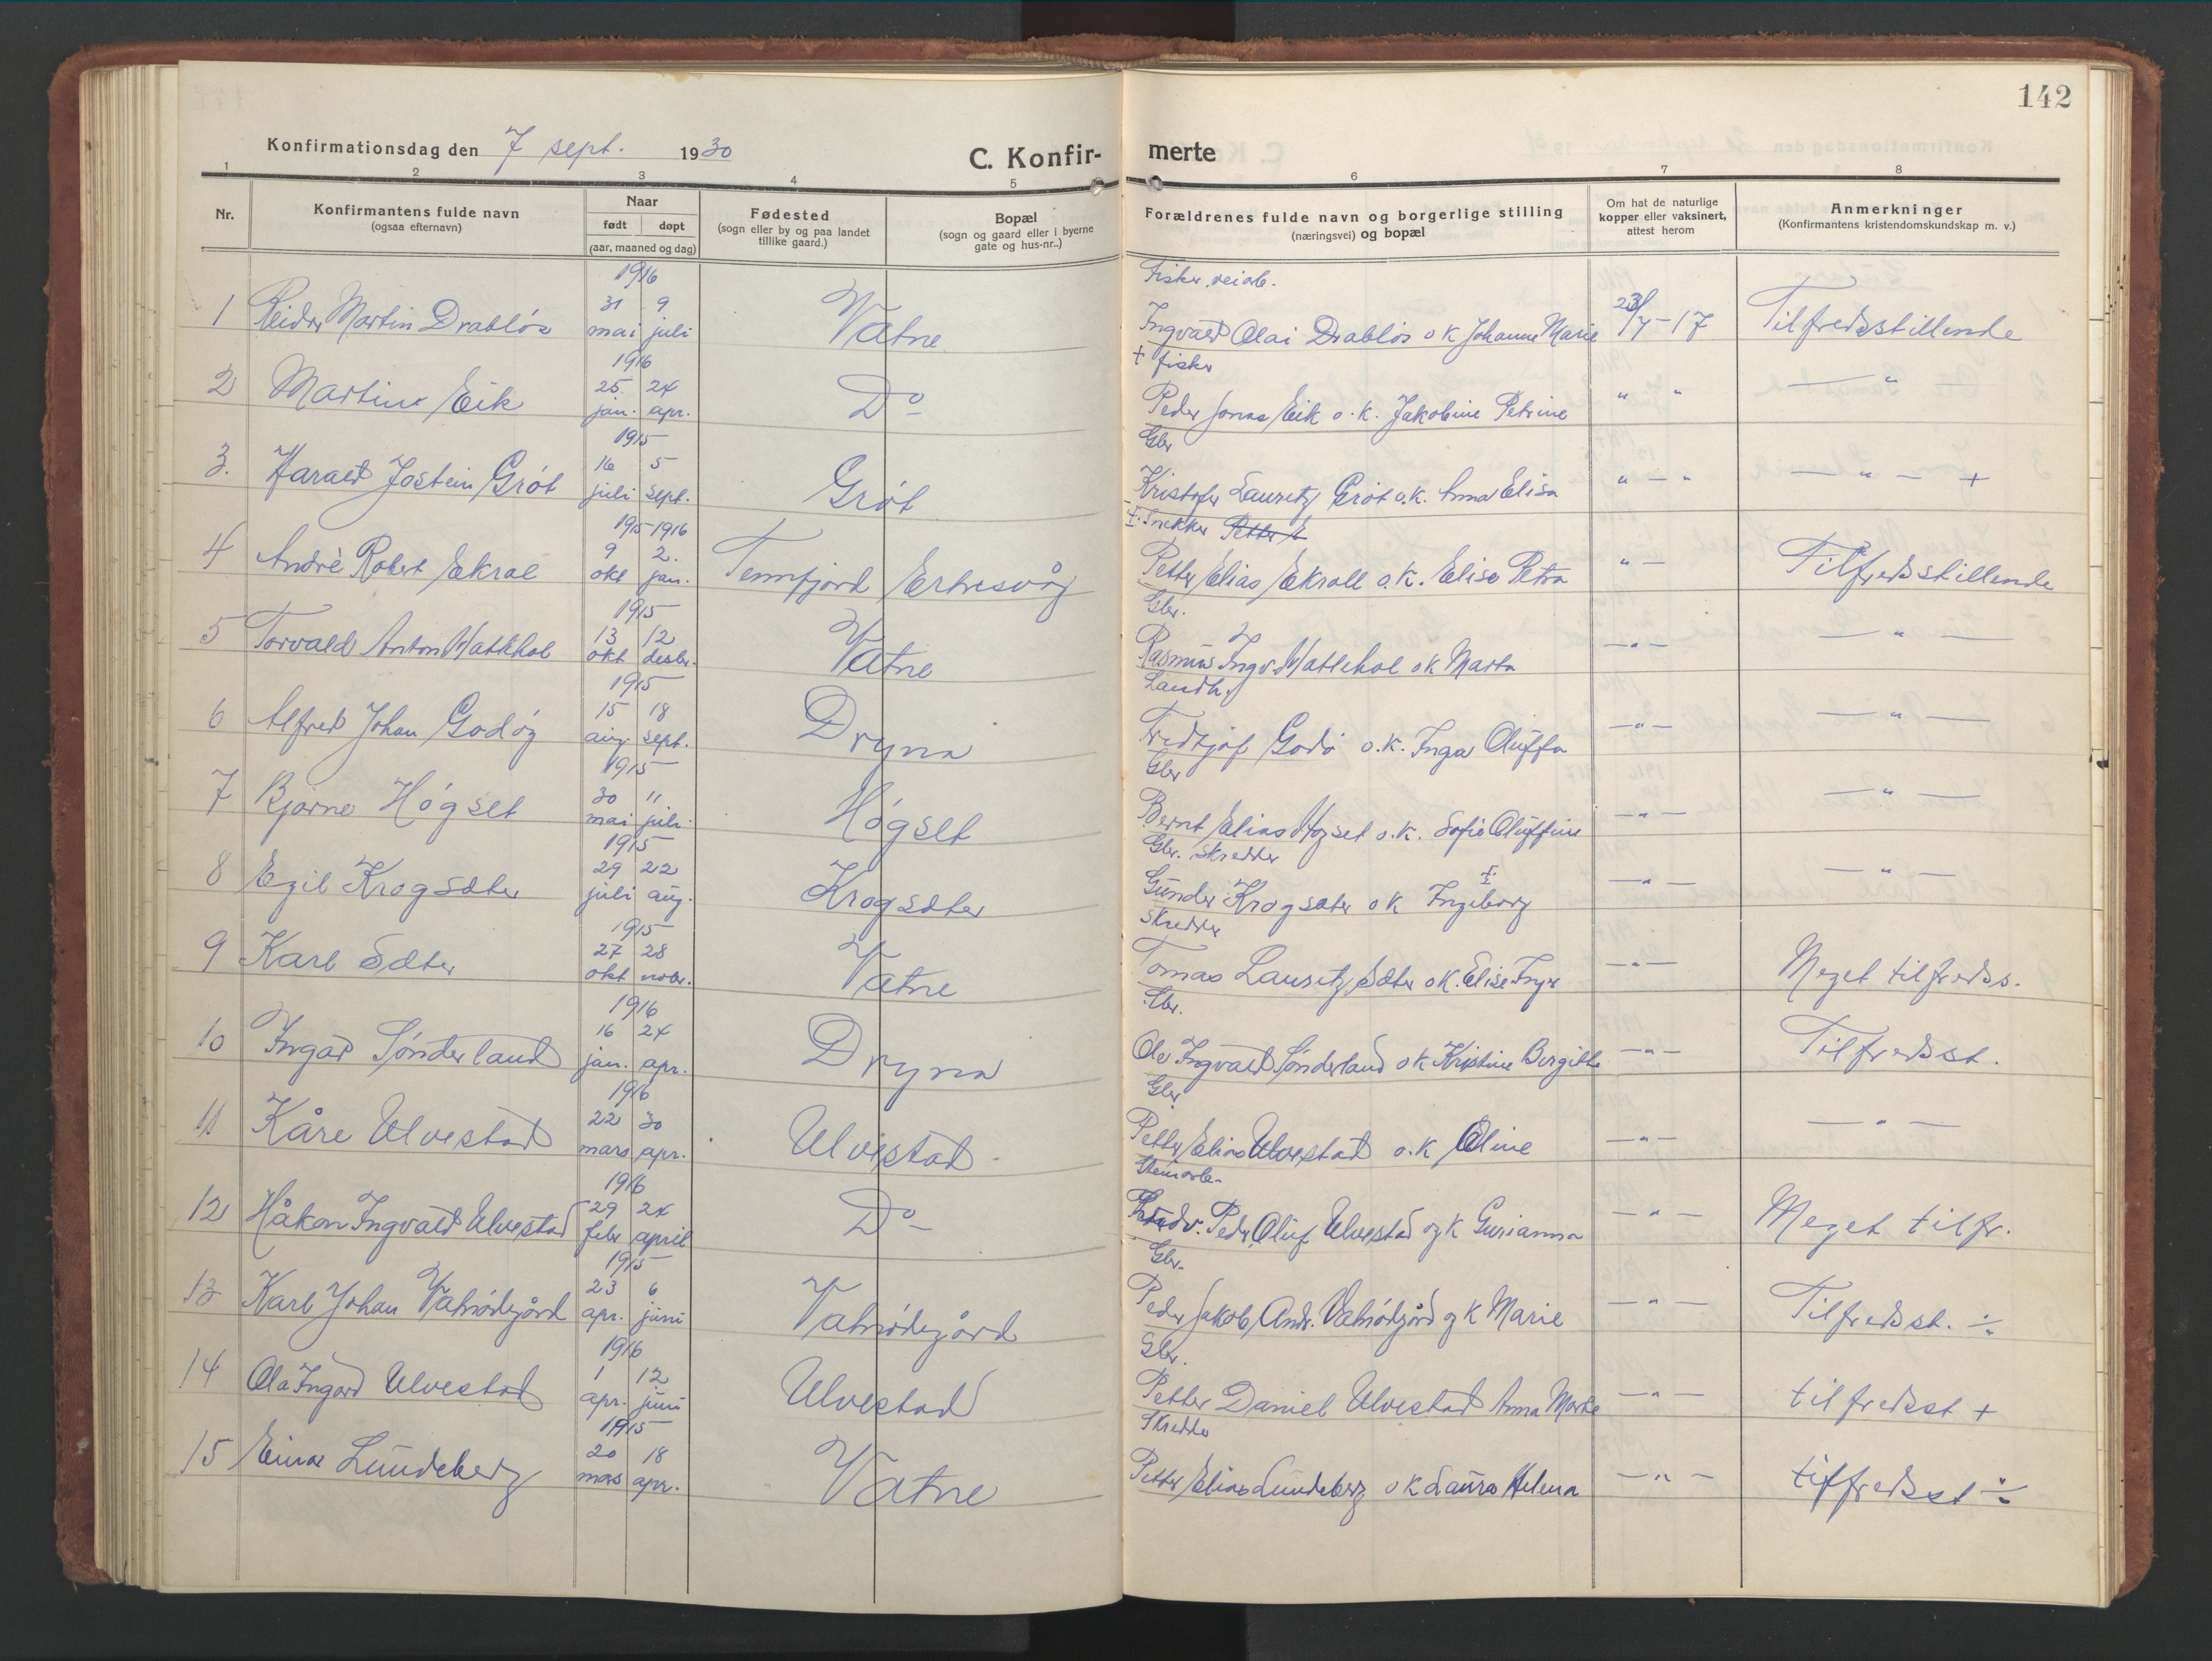 142
Konfirmationsdag den 7 sept. 1930
C. Konfir-
merte
1 2 3 4 5 6 7 8
Nr.
Konfirmantens fulde navn
(ogsaa efternavn)
Naar
født døpt
(aar, maaned og dag)
Fødested
(sogn eller by og paa landet
tillike gaard.)
Bopæl
(sogn og gaard eller i byerne
gate og hus-nr..)
Forældrenes fulde navn og borgerlige stilling
(næringsvei) og bopæl
Om hat de naturlige
kopper eller vaksinert,
attest herom
Anmerkninger
(Konfirmantens kristendomskundskap m. v.)
1916 Fisker, veiarb.
1 Reidar Martin Drabløs 31 mai 9 juli Vatne Ingvald Olai Drabløs o k Johanne Marie 23/7-17 Tilfredsstillende
1916 + fisker
2 Martin Eik 25 jan. 24 apr. Do Peder Jonas Eik o. k. Jakobine Petrine " " — " —
1915 Gbr
3. Harald Jostein Grøt 16 juli 5 sept. Grøt Kristofer Lauritz Grøt o. k. Anna Elisa " — " — " — +
1915-1916 + Snekker Petter E
4 André Robert Ekroll 9 okt 2. jan. Tennfjord Ertresvåg Petter Elias Ekroll o. k. Elise Petra " — Tilfredsstillende
1915 Gbr.
5 Torvald Anton Hattehol 13 okt 12 desbr. Vatne Rasmus Ingv. Hattehol o k Marta — " — — " —
1915 Landh.
6 Alfred Johan Godøy 15 aug. 18 sept. Dryna Fredtjof Godø o. k. Inga Oluffa — " — — " —
1915 Gbr
7 Bjarne Høgset 30 mai 11 juli. Høgset Bernt Elias Høgset o. k. Sofie Oluffine — " — — " —
1915 Gbr. skredder
8 Egil Krogsæter 29 juli 22 aug. Krogsæter Gunder Krogsæter o k Ingeborg + — " — — " —
1915 Skredder
9 Karl Sæter 27 okt 28 nobr. Vatne Tomas Lauritz Sæter o k. Elise Inga — " — Meget tilfredss.
1916 Gbr.
10 Ingar Sønderland 16 jan. 24 apr. Dryna Ole Ingvald Sønderland o k Kristine Bergitte — " — Tilfredsst.
1916 Gbr
11 Kåre Ulvestad 22 mars 30 apr. Ulvestad Petter Elias Ulvestad o. k Oline — " — — " —
1916
12 Håkon Ingvald Ulvestad 29 febr 24 april Do Peder Oluf Ulvestad og k Gurianna — " — Meget tilfr.
1915 Gbr.
13 Karl Johan Vatnødegård 23 apr. 6 juni Vatnødegård Peder Jakob Andr. Vatnødegård og k Marie — " — Tilfredsst. ÷
1916 Gbr.
14 Ola Ingard Ulvestad 1 apr. 12 juni Ulvestad Petter Daniel Ulvestad Anna Marte — " — tilfredsst +
1915 Skredder
15 Einar Lundeberg 20 mars 18 apr. Vatne Petter Elias Lundeberg o k Laura Helena — " — tilfredsst ÷